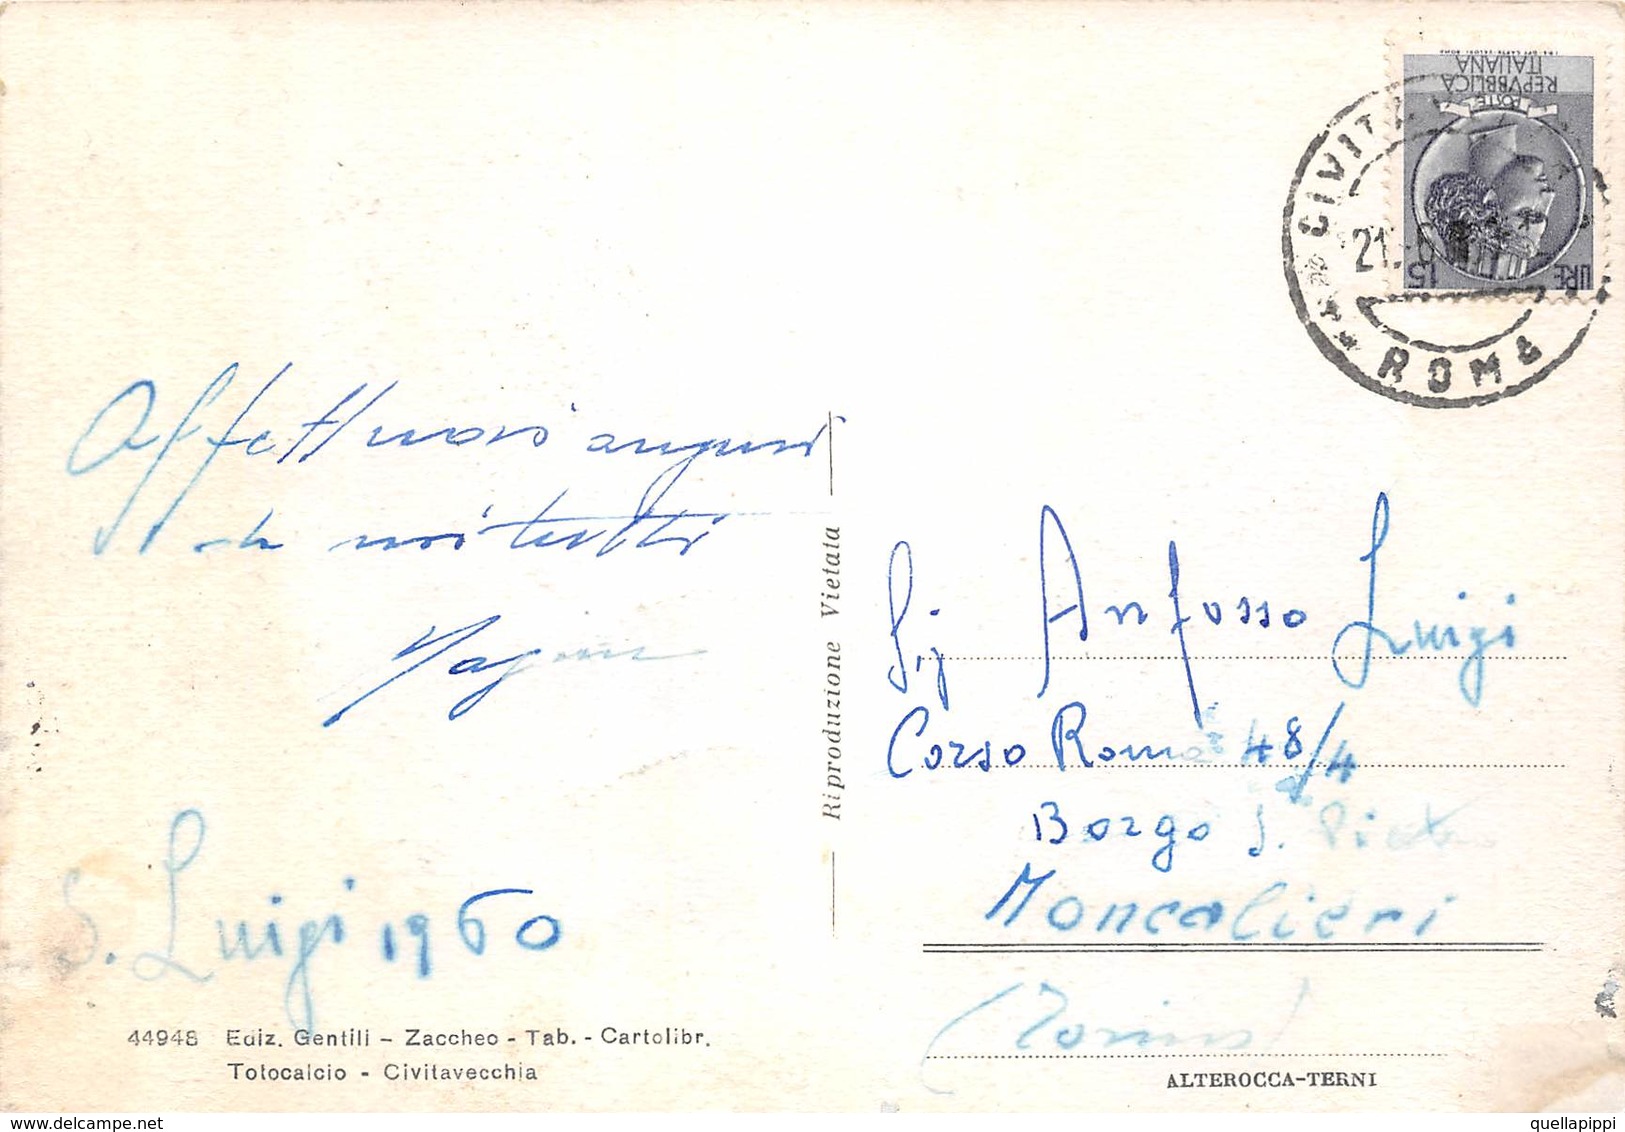 Affettuosi auguri
da noi tutti
S. Luigi 1960
44948 Ediz. Gentili – Zaccheo - Tab. - Cartolibr.
Totocalcio - Civitavecchia
Riproduzione Vietata
POSTE
REPVBBLICA
ITALIANA
LIRE 15
ROMA
Sig Anfosso Luigi
Corso Roma 48/4
Borgo S. Pietro
Moncalieri
(Torino)
ALTEROCCA-TERNI
quellapippi